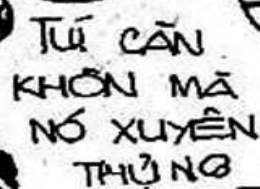 TÚI CÀN
KHÔN MÀ
NÓ XUYÊN
THỦNG